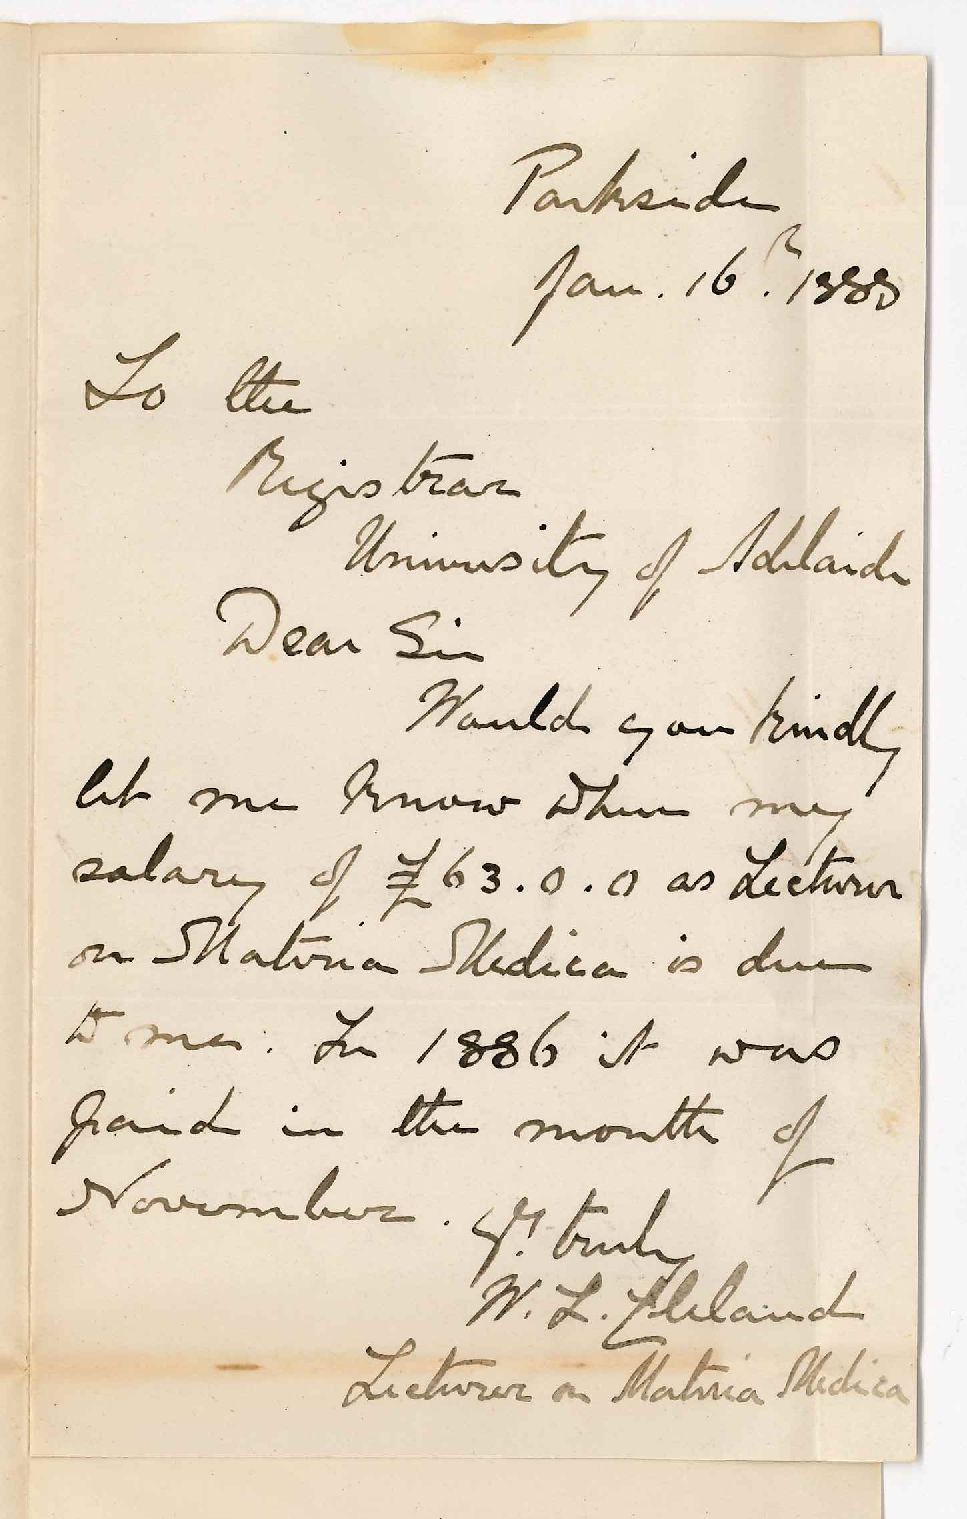 Parkside
Jan. 16th. 1888
To the
Registrar
University of Adelaide
Dear Sir
Would you kindly
let me know when my
salary of £63.0.0 as Lecturer
on Materia Medica is due
to me. In 1886 it was
paid in the month of
November. Yrs. truly
W. L. Cleland
Lecturer on Materia Medica